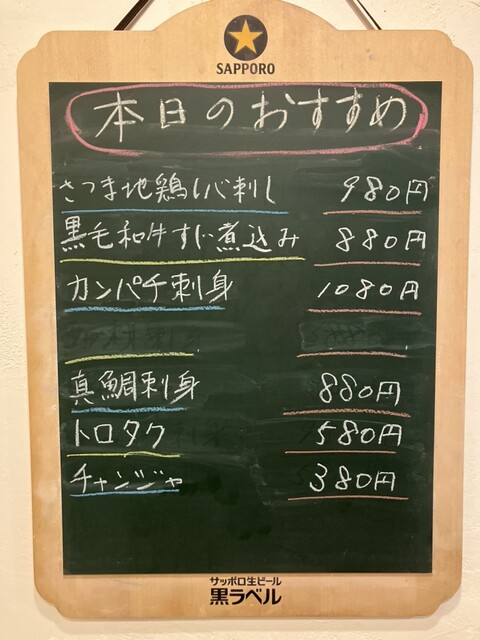 SAPPORO
本日のおすすめ
さつま地鶏レバ刺し 980円
黒毛和牛すじ煮込み 880円
カンパチ刺身 1080円
真鯛刺身 880円
トロタク 580円
チャンジャ 380円
サッポロ生ビール
黒ラベル